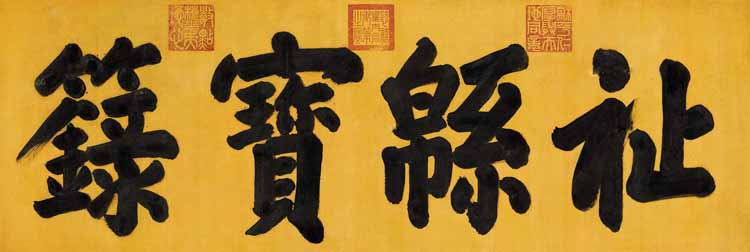 祉緜寶籙